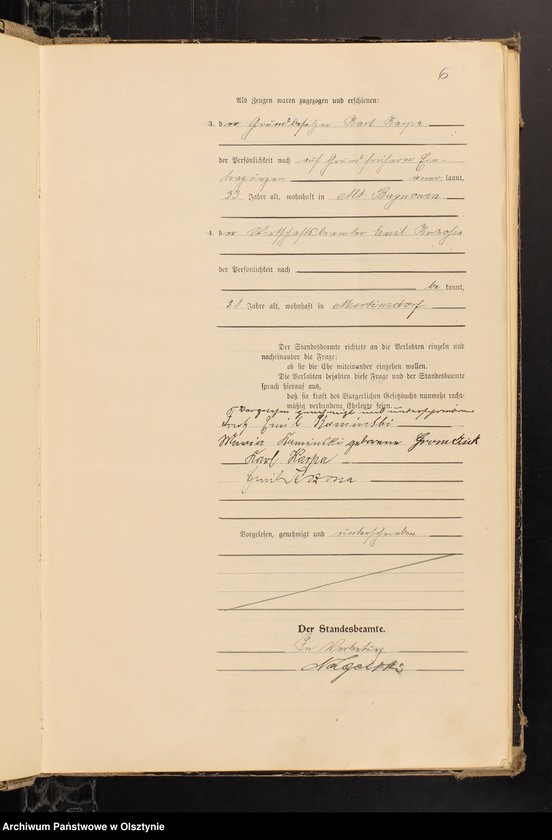 6
Als Zeugen waren zugezogen und erschienen:
3. der Grundbesitzer Karl Karpa
der Persönlichkeit nach auf Grund früherer Ein-
tragungen aner kannt,
33 Jahre alt, wohnhaft in Alt Bagnowen
4. der Wirtschaftsbeamter Emil
der Persönlichkeit nach
be kannt,
21 Jahre alt, wohnhaft in Mertinsdorf
Der Standesbeamte richtete an die Verlobten einzeln und
nacheinander die Frage:
ob sie die Ehe miteinander eingehen wollen.
Die Verlobten bejahten diese Frage und der Standesbeamte
sprach hierauf aus,
daß sie kraft des Bürgerlichen Gesetzbuchs nunmehr recht-
mäßig verbundene Eheleute seien.
Vorgelesen genehmigt und unterschrieben
Emil Kaminski
Maria Kaminski geborene Gromzick
Karl Karpa
Emil
Vorgelesen, genehmigt und unterschrieben
Der Standesbeamte.
In Vertretung
Nagorski
Archiwum Państwowe w Olsztynie